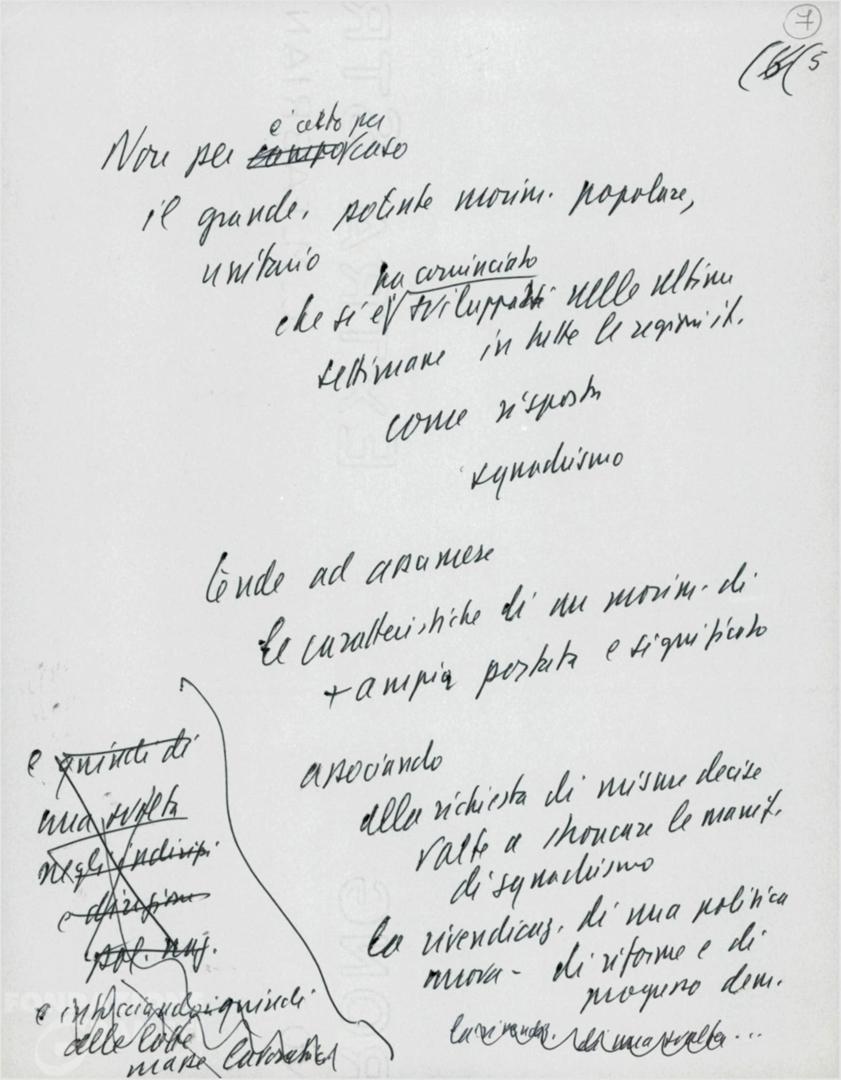 7
5
è certo per
Non per caso
il grande, potente movim. popolare,
unitario
ha cominciato
che si è sviluppato nelle ultime
settimane in tutte le regioni it.
come risposta
squadrismo
tende ad assumere
le caratteristiche di un movim. di
+ ampia portata e significato
associando
alla richiesta di misure decise
volte a stroncare le manif.
di squadrismo
la rivendicaz. di una politica
nuova - di riforme e di
progresso dem.
la rivendic. di una svolta...
e quindi di
una svolta
negli indirizzi
e direzione
pol. naz.
e intrecciandosi quindi
alle lotte
masse lavoratrici